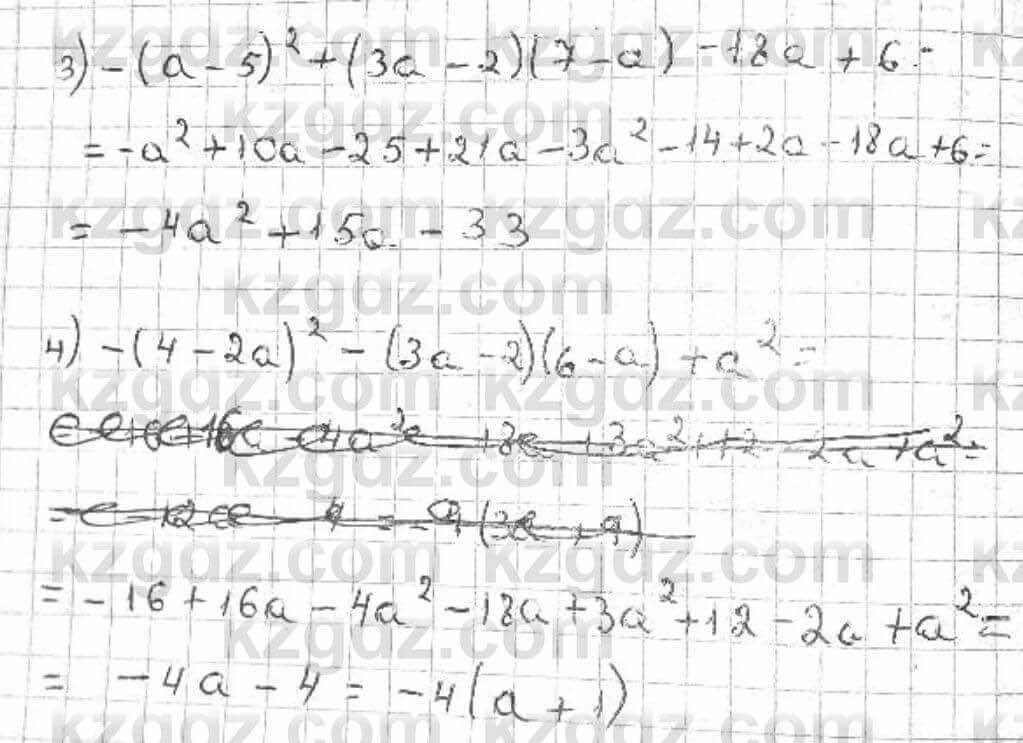 3) -(a - 5)² + (3a - 2)(7 - a) - 18a + 6 =
= -a² + 10a - 25 + 21a - 3a² - 14 + 2a - 18a + 6 =
= -4a² + 15a - 33
4) -(4 - 2a)² - (3a - 2)(6 - a) + a² =
= -16 + 16a - 4a² - 18a + 3a² + 12 - 2a + a² =
= -4a - 4 = -4(a + 1)
kzgdz.com